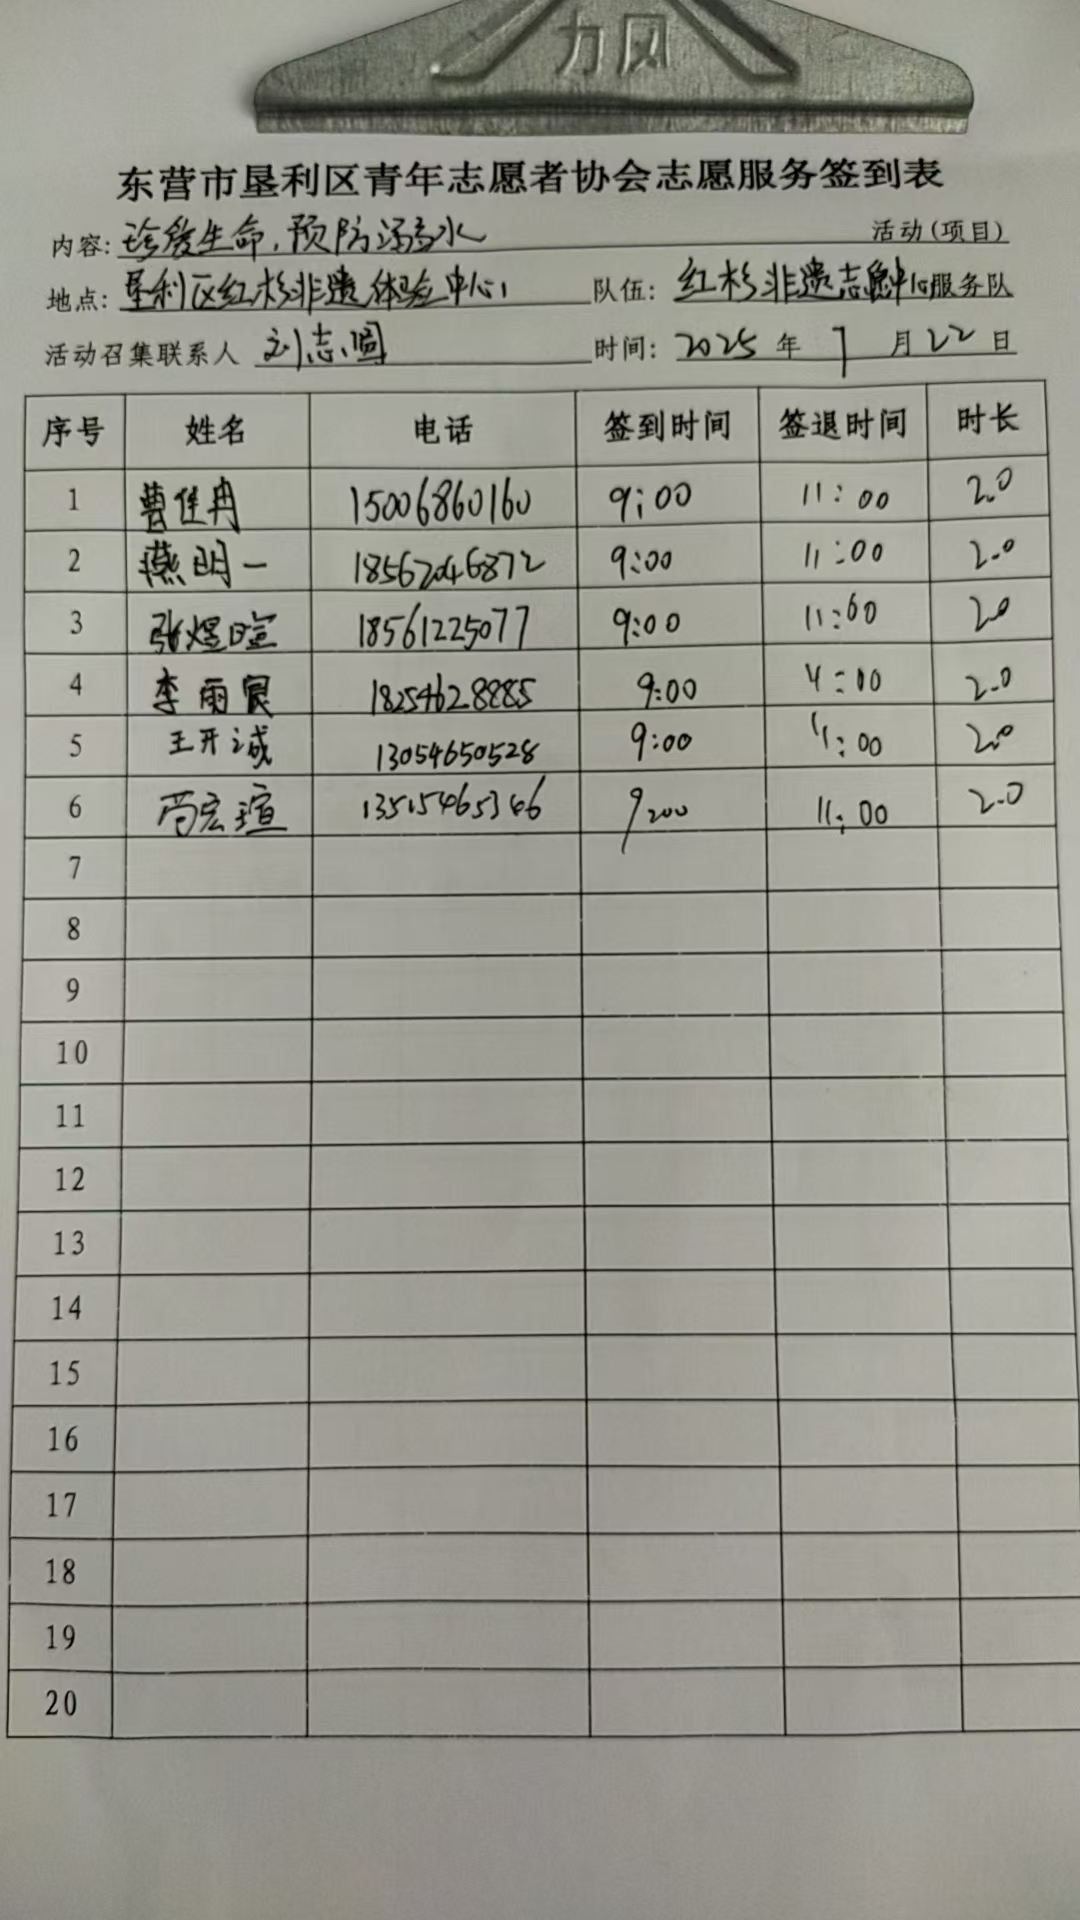 力风
东营市垦利区青年志愿者协会志愿服务签到表
内容: 珍爱生命,预防溺水 活动(项目)
地点: 垦利区红杉非遗体验中心 队伍: 红杉非遗志愿服务队
活动召集联系人 刘志圆 时间: 2025 年 7 月 22 日
序号 姓名 电话 签到时间 签退时间 时长
1 曹佳冉 15006860160 9:00 11:00 2.0
2 燕明一 18562046872 9:00 11:00 2.0
3 张煜暄 18561225077 9:00 11:00 2.0
4 李雨宸 18254628885 9:00 11:00 2.0
5 王开诚 13054650528 9:00 11:00 2.0
6 尚宏瑄 13515465346 9:00 11:00 2.0
7
8
9
10
11
12
13
14
15
16
17
18
19
20